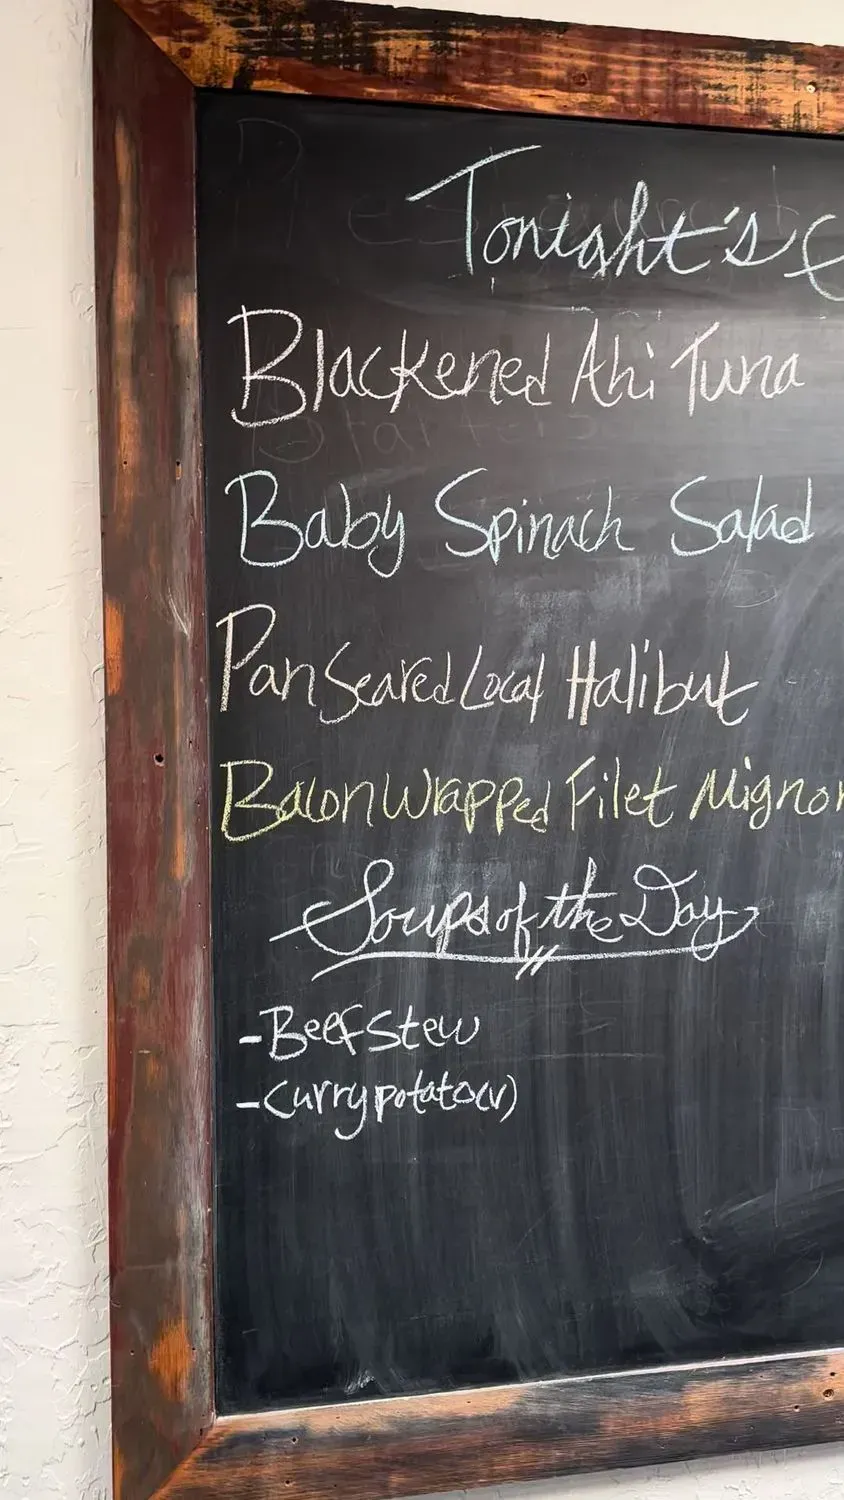 Tonight's
Blackened Ahi Tuna
Baby Spinach Salad
Pan Seared Local Halibut
Bacon Wrapped Filet Mignon
Soups of the Day
-Beef Stew
-Curry potato(v)